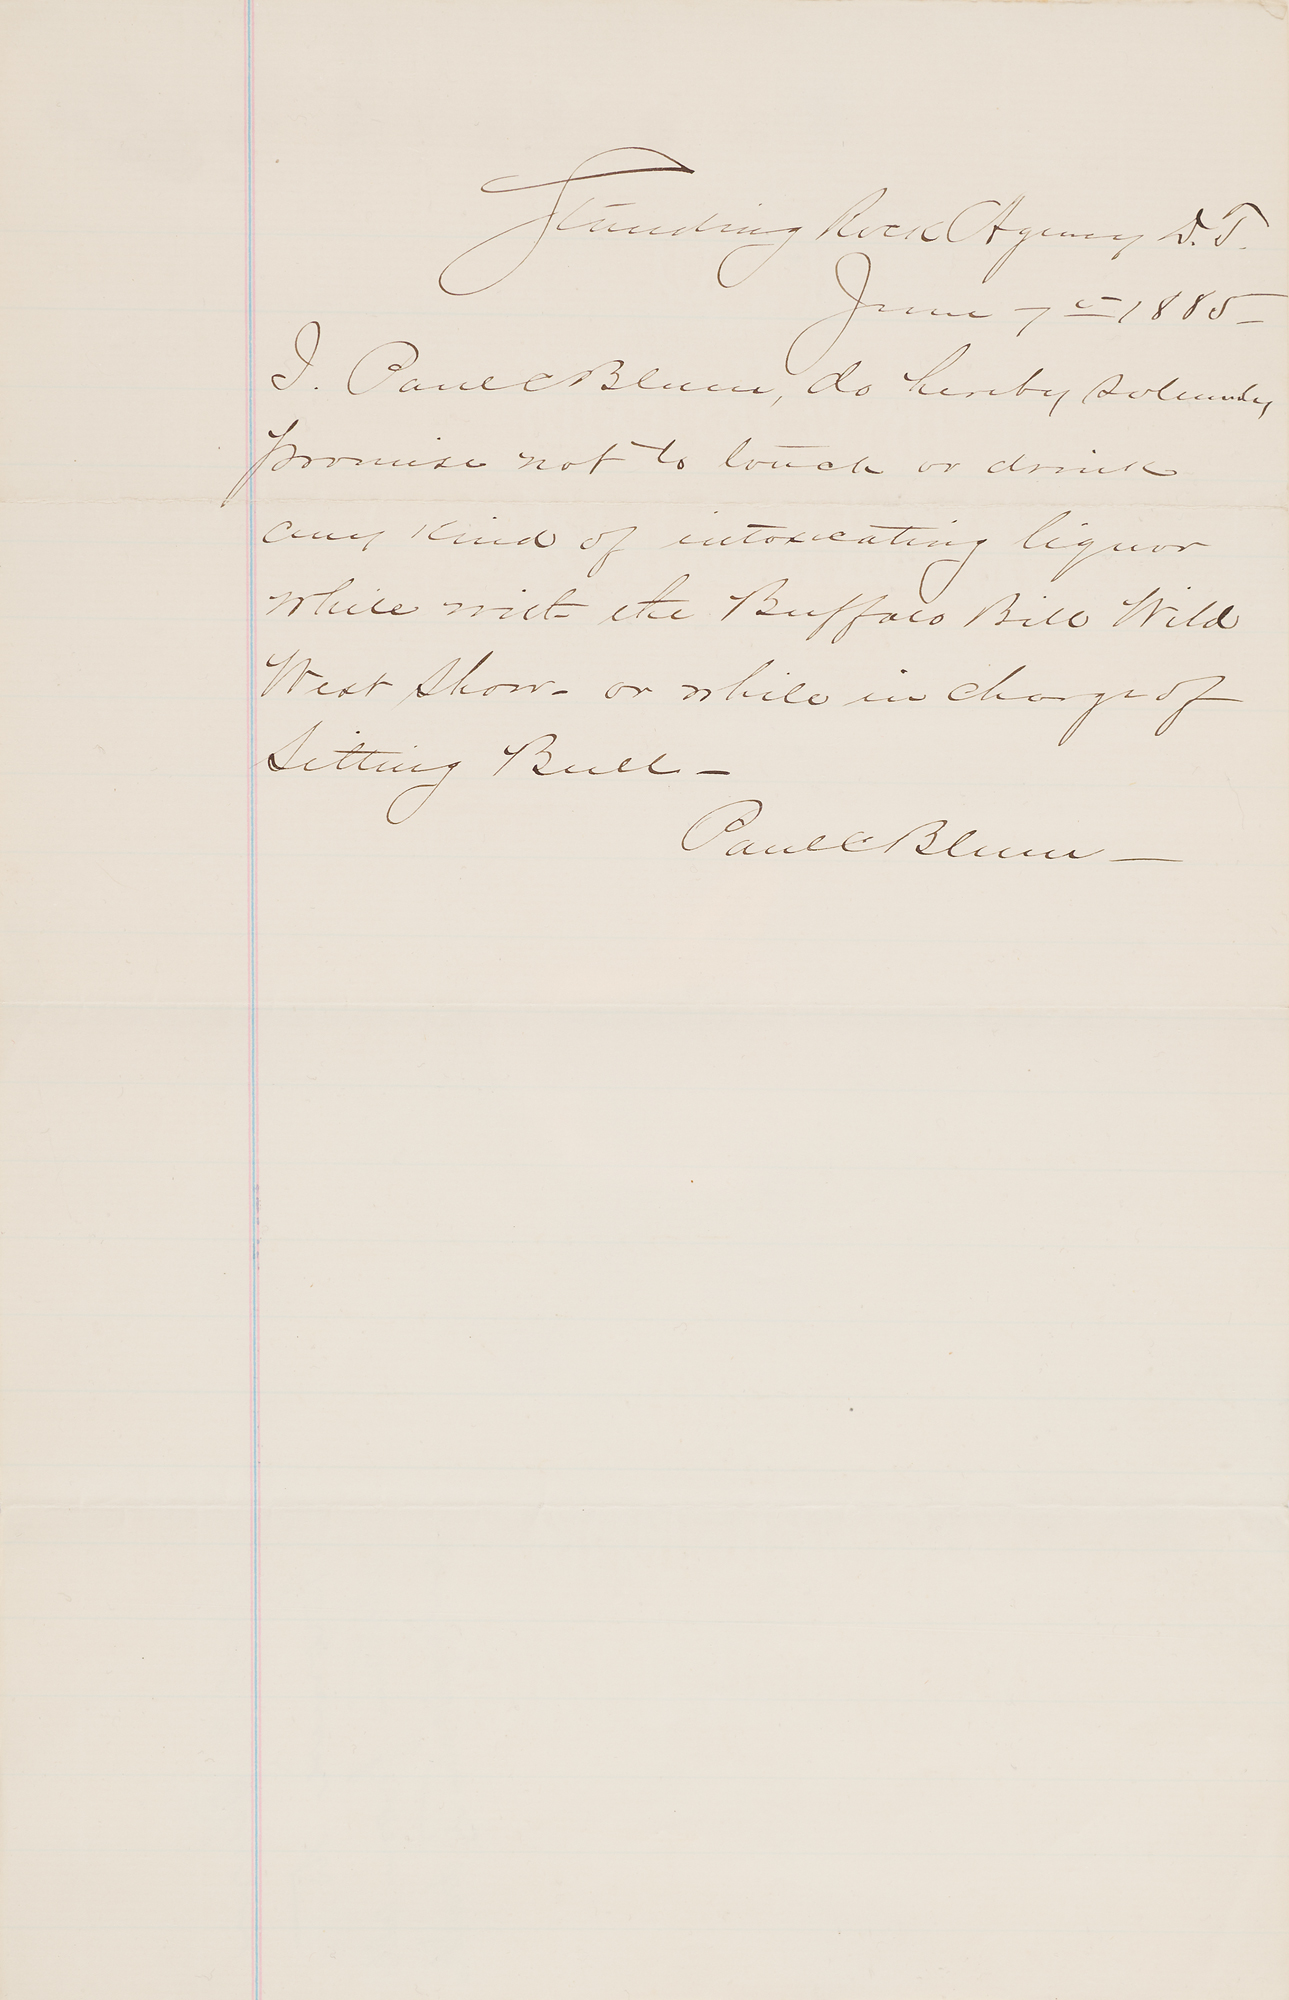 Standing Rock Agency D.T.
June 7th 1885
I. Paul C Blum, do hereby solemnly
promise not to touch or drink
any kind of intoxicating liquor
while with the Buffalo Bill Wild
West Show - or while in charge of
Sitting Bull -
Paul C Blum -